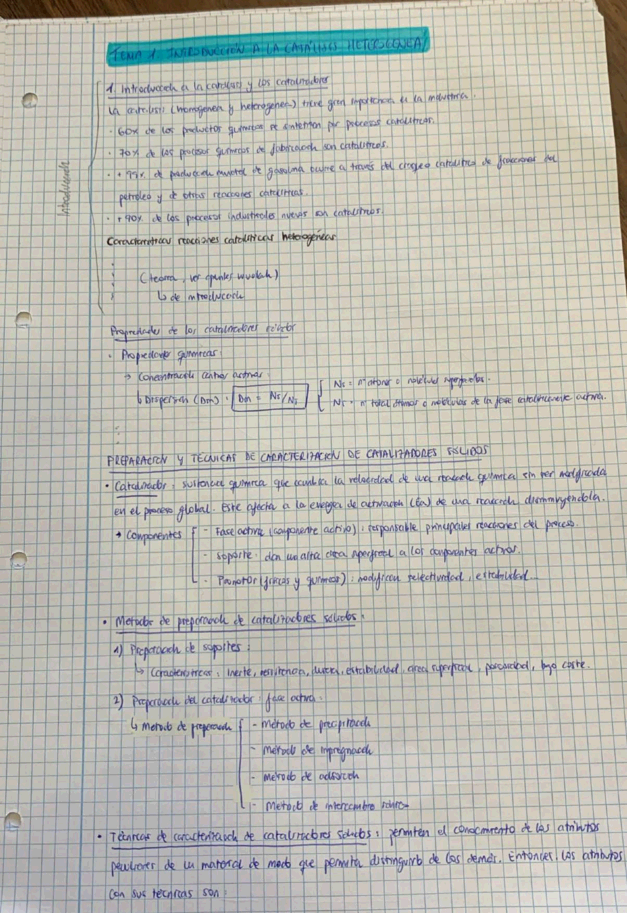 TEMA 1. INTRODUCCIÓN A LA CATÁLISIS HETEROGÉNEA
1. Introducción a la catálisis y los catalizadores
La catálisis (homogénea y heterogénea) tiene gran importancia en la industria.
· 60% de los productos químicos se sintetizan por procesos catalíticos.
· 70% de los procesos químicos de fabricación son catalíticos.
· +99% de producción mundial de gasolina ocurre a través del craqueo catalítico de fracciones del
petróleo y de otras reacciones catalíticas.
· +90% de los procesos industriales nuevos son catalíticos.
Introducción
Características reacciones catalíticas heterogéneas
(teoría, ver apuntes)
↳ de introducción
Propiedades de los catalizadores sólidos
· Propiedades químicas:
→ Concentración centros activos:
↳ Dispersión (Dm): Dm = Ns/NT
Ns = nº átomos o moléculas superficiales.
NT = nº total átomos o moléculas de la fase catalíticamente activa.
PREPARACIÓN Y TÉCNICAS DE CARACTERIZACIÓN DE CATALIZADORES SÓLIDOS
• Catalizador: sustancia química que cambia la velocidad de una reacción química sin ser modificada
en el proceso global. Este afecta a la energía de activación (Ea) de una reacción disminuyéndola.
→ Componentes
- Fase activa (componente activo): responsable principales reacciones del proceso.
- Soporte: dan un alta área superficial a los componentes activos.
- Promotor (físicos y químicos): modifican selectividad, estabilidad...
• Métodos de preparación de catalizadores sólidos:
1) Preparación de soportes:
↳ Características: inerte, resistencia, dureza, estabilidad, área superficial, porosidad, bajo coste.
2) Preparación del catalizador: fase activa.
↳ Método de preparación
- Método de precipitación
- Método de impregnación
- Método de adsorción
- Método de intercambio iónico
• Técnicas de caracterización de catalizadores sólidos: permiten el conocimiento de los atributos
peculiares de un material de modo que permita distinguirlo de los demás. Entonces, los atributos
con sus técnicas son: